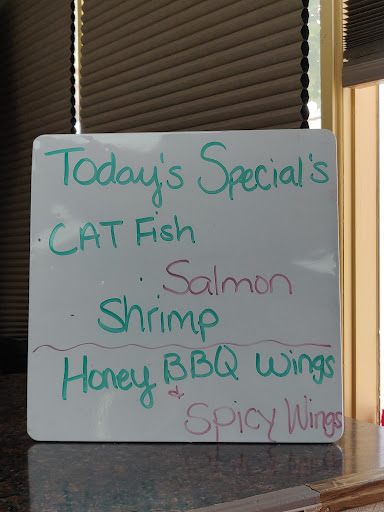 Today's Special's
CAT Fish
Salmon
Shrimp
Honey BBQ Wings
& Spicy Wings